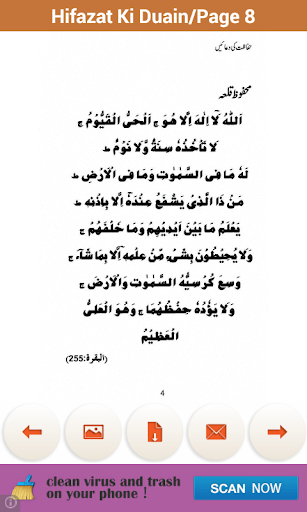 Hifazat Ki Duain/Page 8
حفاظت کی دعائیں
محفوظ قلعہ
اَللّٰهُ لَاۤ اِلٰهَ اِلَّا هُوَ ۚ اَلْحَیُّ الْقَیُّوْمُ ۚ
لَا تَاْخُذُهٗ سِنَةٌ وَّلَا نَوْمٌ ؕ
لَهٗ مَا فِی السَّمٰوٰتِ وَمَا فِی الْاَرْضِ ؕ
مَنْ ذَا الَّذِیْ یَشْفَعُ عِنْدَهٗۤ اِلَّا بِاِذْنِهٖ ؕ
یَعْلَمُ مَا بَیْنَ اَیْدِیْهِمْ وَمَا خَلْفَهُمْ ۚ
وَلَا یُحِیْطُوْنَ بِشَیْءٍ مِّنْ عِلْمِهٖۤ اِلَّا بِمَا شَآءَ ۚ
وَسِعَ كُرْسِیُّهُ السَّمٰوٰتِ وَالْاَرْضَ ۚ
وَلَا یَؤُدُهٗ حِفْظُهُمَا ۚ وَهُوَ الْعَلِیُّ
الْعَظِیْمُ
(البقرة:255)
4
clean virus and trash
on your phone !
SCAN NOW